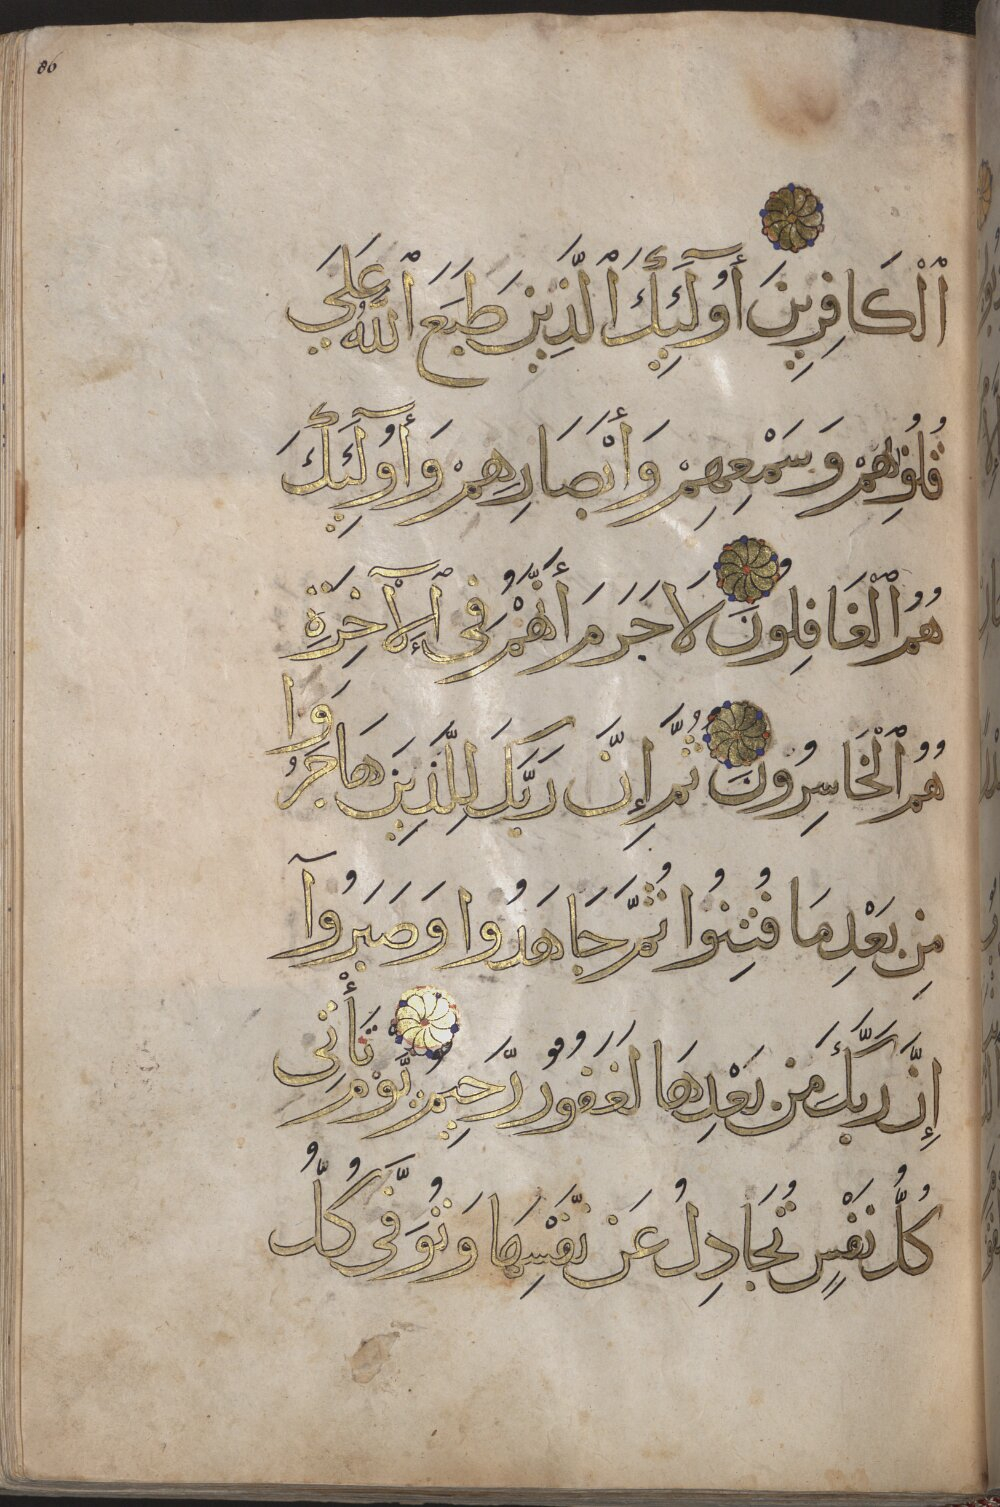 86
ٱلْكَافِرِينَ أُولَٰٓئِكَ ٱلَّذِينَ طَبَعَ ٱللَّهُ عَلَى
قُلُوبِهِمْ وَسَمْعِهِمْ وَأَبْصَارِهِمْ وَأُولَٰٓئِكَ
هُمُ ٱلْغَافِلُونَ لَا جَرَمَ أَنَّهُمْ فِي ٱلْآخِرَةِ
هُمُ ٱلْخَاسِرُونَ ثُمَّ إِنَّ رَبَّكَ لِلَّذِينَ هَاجَرُوا
مِن بَعْدِ مَا فُتِنُوا ثُمَّ جَاهَدُوا وَصَبَرُوٓا
إِنَّ رَبَّكَ مِن بَعْدِهَا لَغَفُورٌ رَّحِيمٌ يَوْمَ تَأْتِي
كُلُّ نَفْسٍ تُجَادِلُ عَن نَّفْسِهَا وَتُوَفَّى كُلُّ